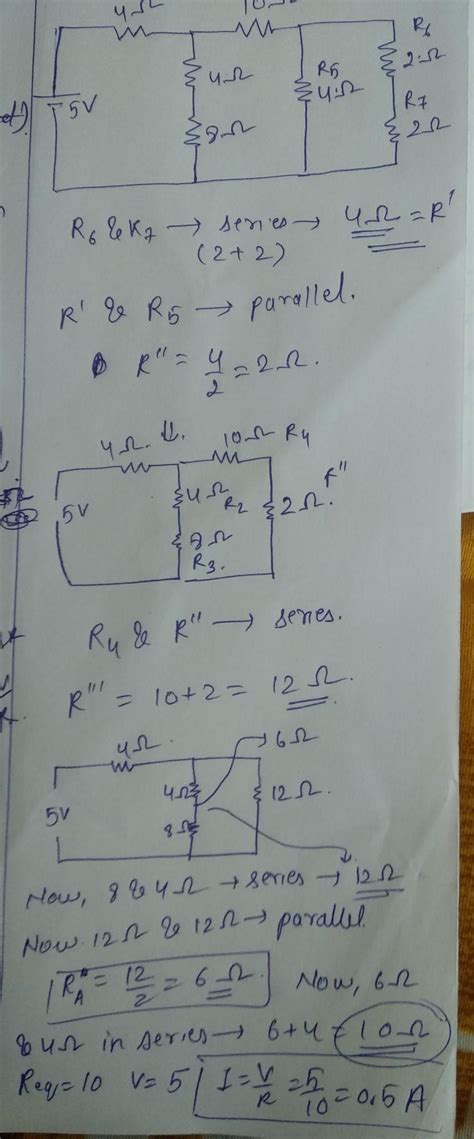 4Ω 10Ω
R6
4Ω R5 2Ω
5V 4Ω R7
8Ω 2Ω
R6 & R7 → series → 4Ω = R'
(2+2)
R' & R5 → parallel.
R'' = 4/2 = 2Ω.
⇓
4Ω. 10Ω R4
4Ω R''
5V R2 2Ω.
8Ω
R3.
R4 & R'' → series.
R''' = 10+2 = 12Ω.
4Ω. 6Ω
4Ω 12Ω.
5V
8Ω
Now, 8 & 4Ω → series → 12Ω
Now 12Ω & 12Ω → parallel.
= 12/2 = 6Ω. Now, 6Ω
& 4Ω in series → 6+4 = 10Ω
Req = 10 V = 5 I = V/R = 5/10 = 0.5 A